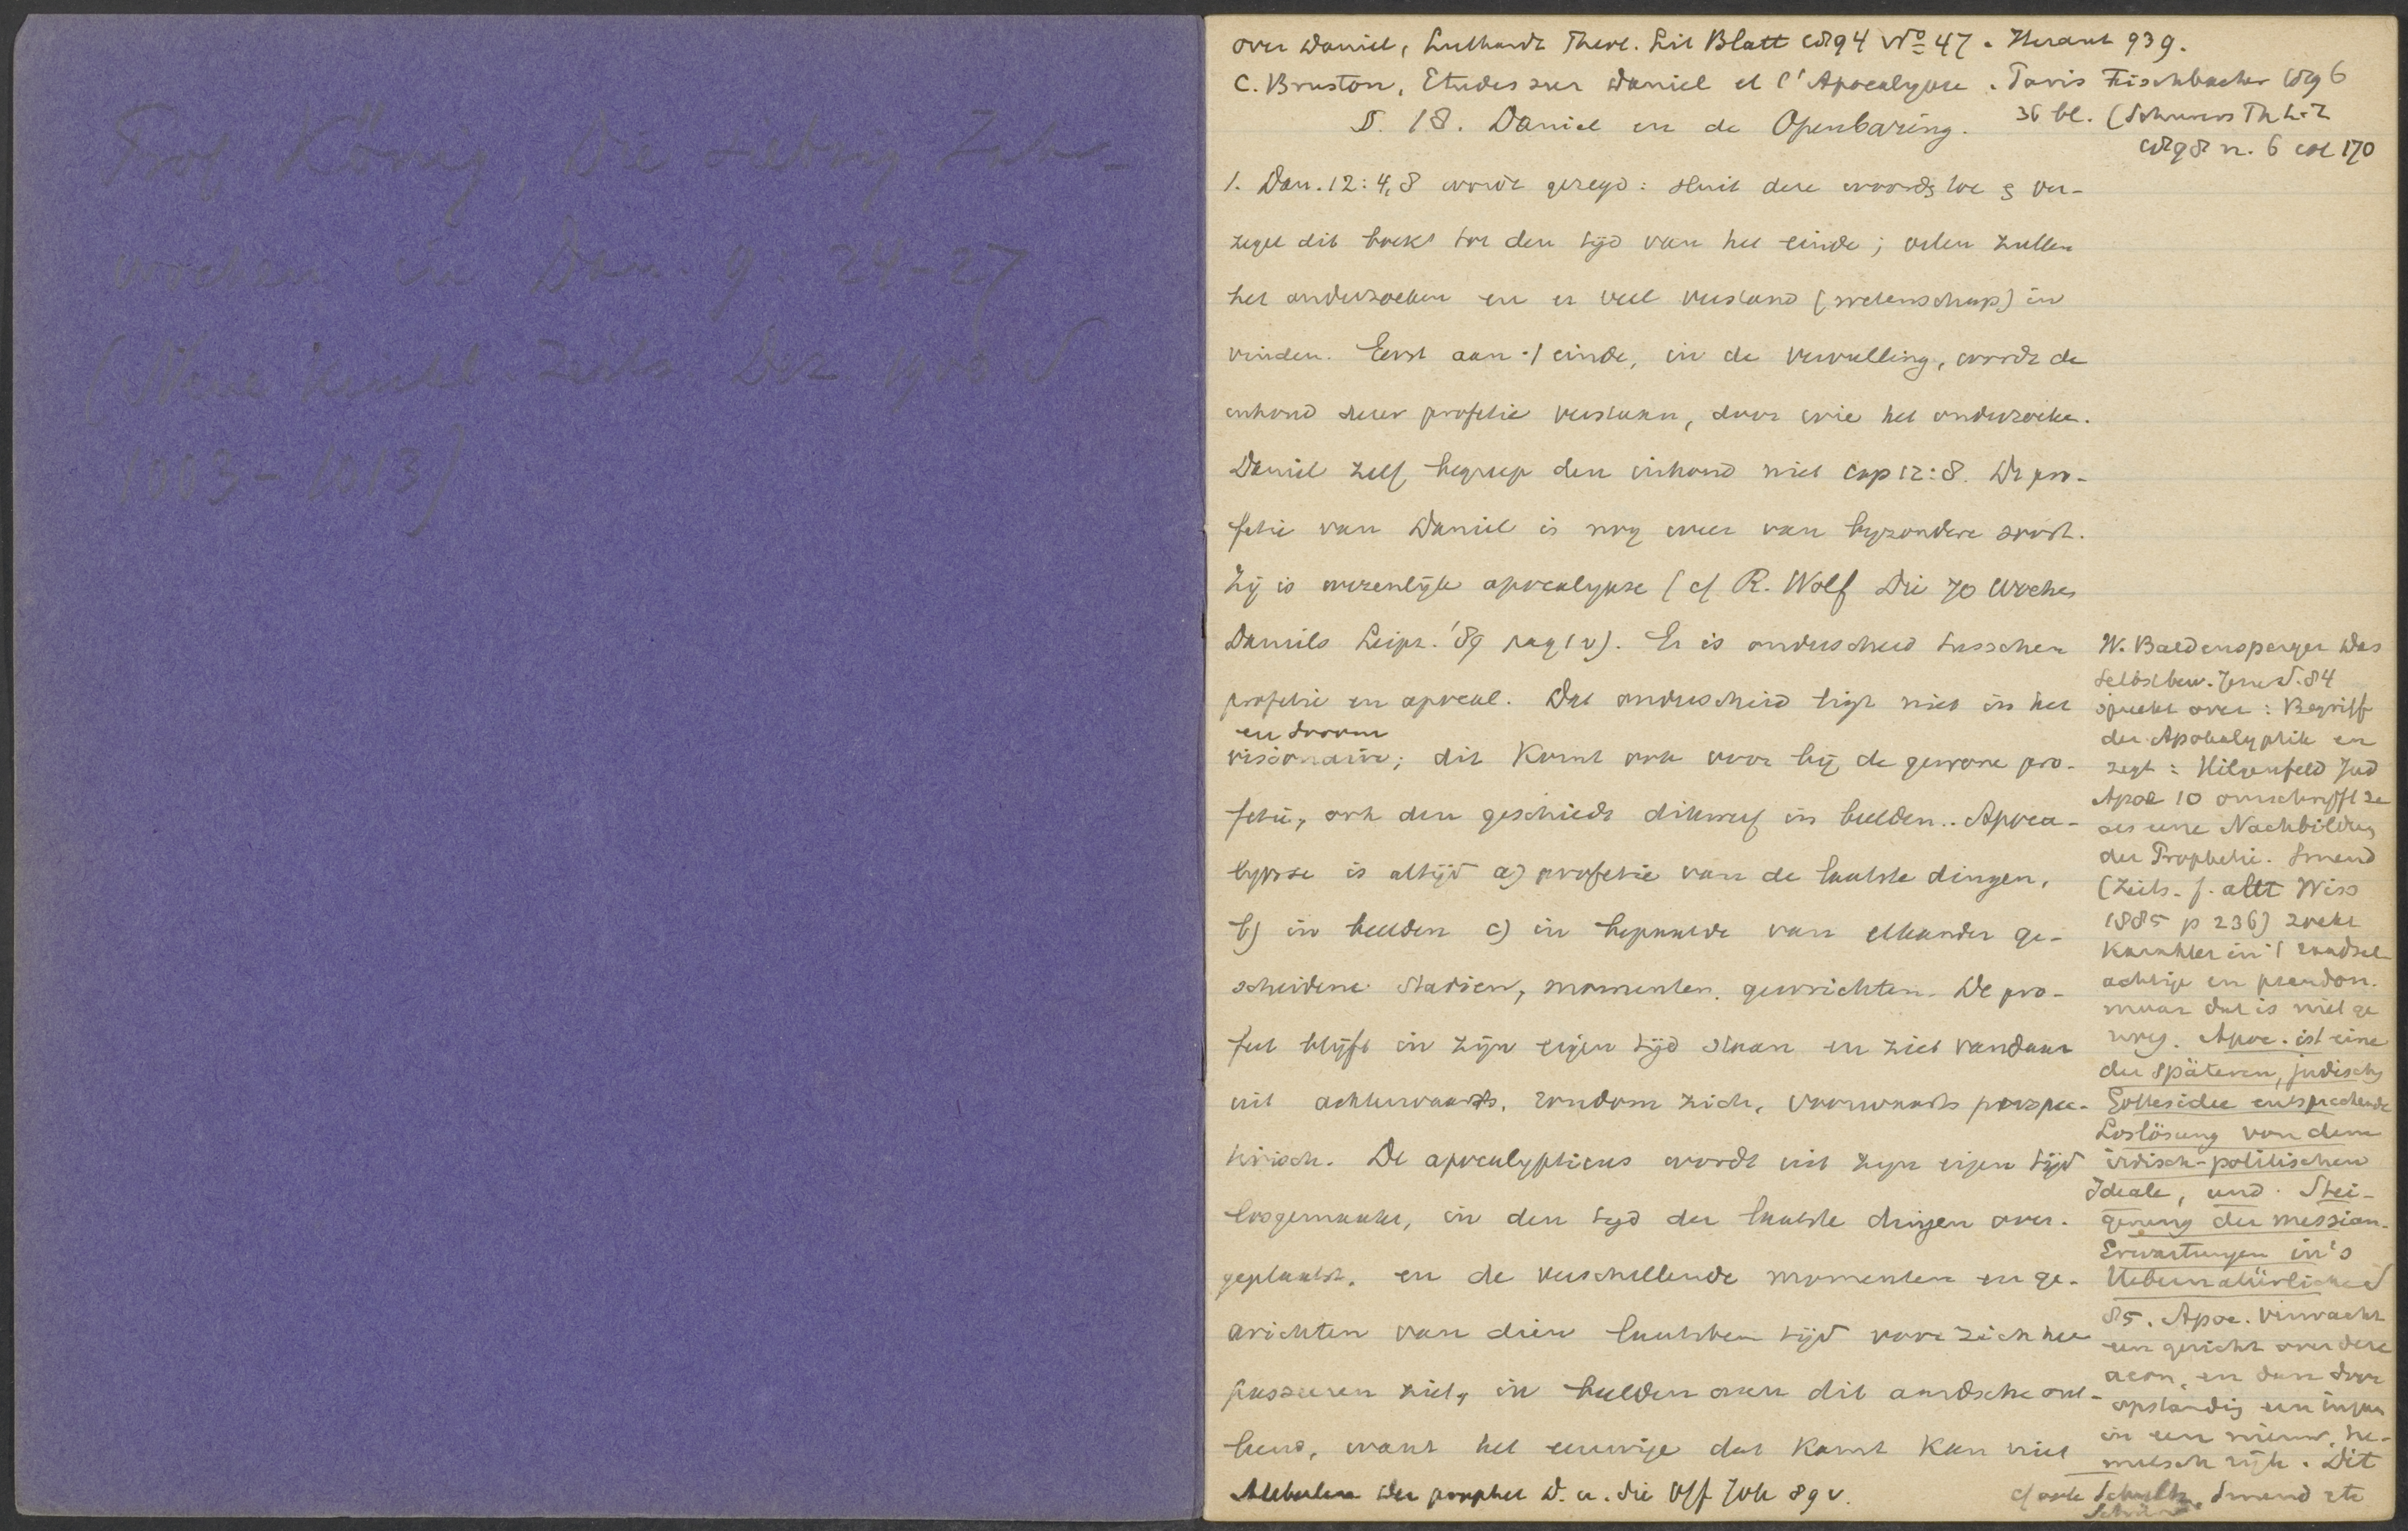 Prof König, Die siebzig Jahr-
wochen in Dan. 9: 24-27
(Neue kirchl Zeits Dez 19
1003-1013)
over Daniel, Luthardt Theol. Lit Blatt 1894 No 47. Heraut 939.
C. Bruston, Etudes sur Daniel et l'Apocalypse. Paris Fischbacher 1896
36 bl. (Schurers Th L.Z
1898 n. 6 col 170
§. 18. Daniel en de Openbaring.
1. Dan. 12: 4, 8 wordt gezegd: sluit deze woorden toe en ver-
zegel dit boek tot den tijd van het einde; velen zullen
het onderzoeken en er veel verstand (wetenschap) in
vinden. Eerst aan 't einde, in de vervulling, wordt de
inhoud dezer profetie verstaan, door wie het onderzoeken.
Daniel zelf begreep den inhoud niet cap 12:8. De pro-
fetie van Daniel is nog weer van byzondere soort.
Zij is wezenlijk apocalypse (cf R. Wolf Die 70 Wochen
Daniels Leipz. '89 pag 1 v). Er is onderscheid tusschen
profetie en apocal. Dat onderscheid ligt niet in het
en droom
visionaire; dit komt ook voor bij de gewone pro-
fetie, ook den geschiedt dikwerf in beelden. Apoca-
lypse is altijd a) profetie van de laatste dingen,
b) in beelden c) in bepaalde van elkander ge-
scheidene Stadien, momenten, gewrichten. De pro-
feet blijft in zijn eigen tijd staan en ziet vandaar
uit achterwaarts, rondom zich, voorwaarts perspec-
tivisch. De apocalypticus wordt uit zijn eigen tijd
losgemaakt, in den tijd der laatste dingen over-
geplaatst, en de verschillende momenten en ge-
wrichten van dien laatsten tijd voor zich heen
passeeren ziet, in beelden aan dit aardsche ont-
leend, want het eeuwige dat komt kan niet
der prophet D. u. die Off Joh 89 v.
W. Baldensperger Das
Selbstbew. Jesu S. 84
spreekt over: Begriff
der Apokalyptik en
zegt: Hilgenfeld Jud
Apoc 10 omschryft ze
als eene Nachbildung
der Prophetie. Smend
(Zeits. f. altt Wiss
1885 p 236) zoekt
karakter in 't raadsel-
achtige en pseudon.
maar dat is niet ge
noeg. Apoc. ist eine
der späteren, jüdischen
Gottesidee entsprechende
Loslösung von dem
irdisch-politischen
Ideale, und Stei-
gerung der messian.
Erwartungen in's
Uebernatürliche S
85. Apoc. verwacht
een gericht over deze
aeon, en dan door
opstanding een ingaan
in een nieuw, he-
melsch rijk. Dit
cf ook Schultz, Smend etc